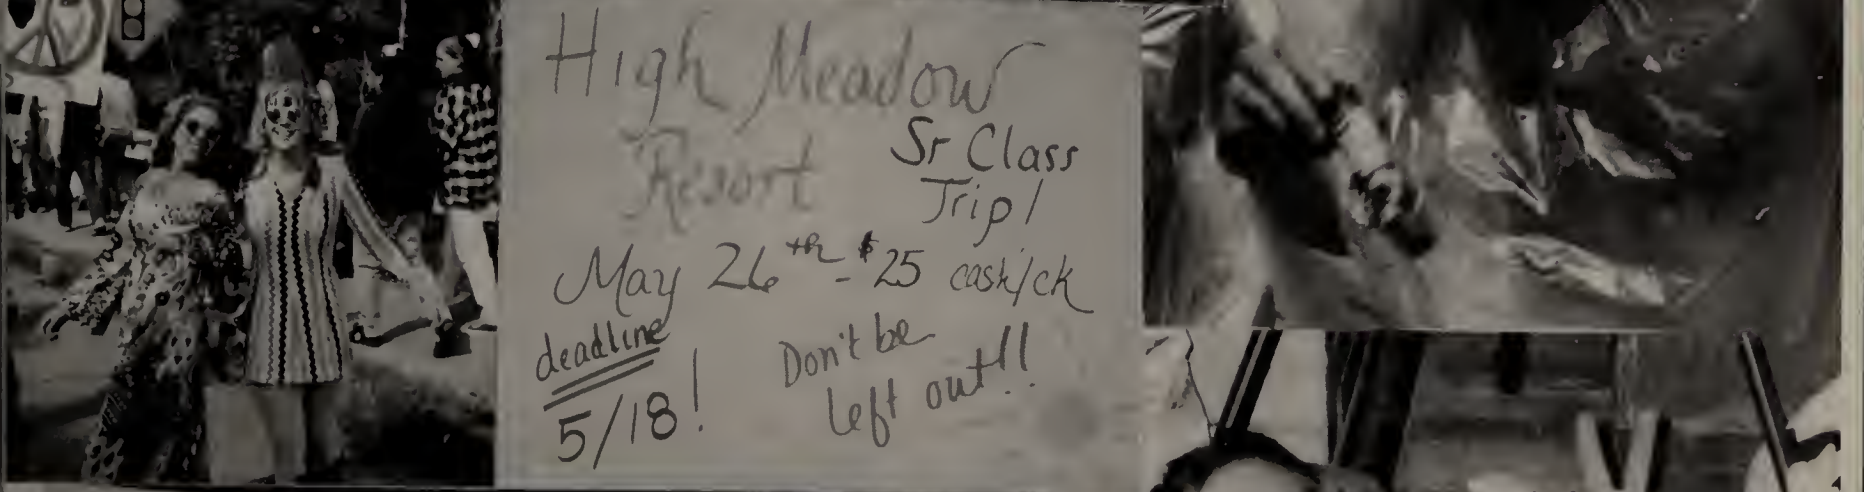 High Meadow
Resort
Sr Class
Trip!
May 26th - $25 cash/ck
deadline
5/18!
Don't be
left out!!